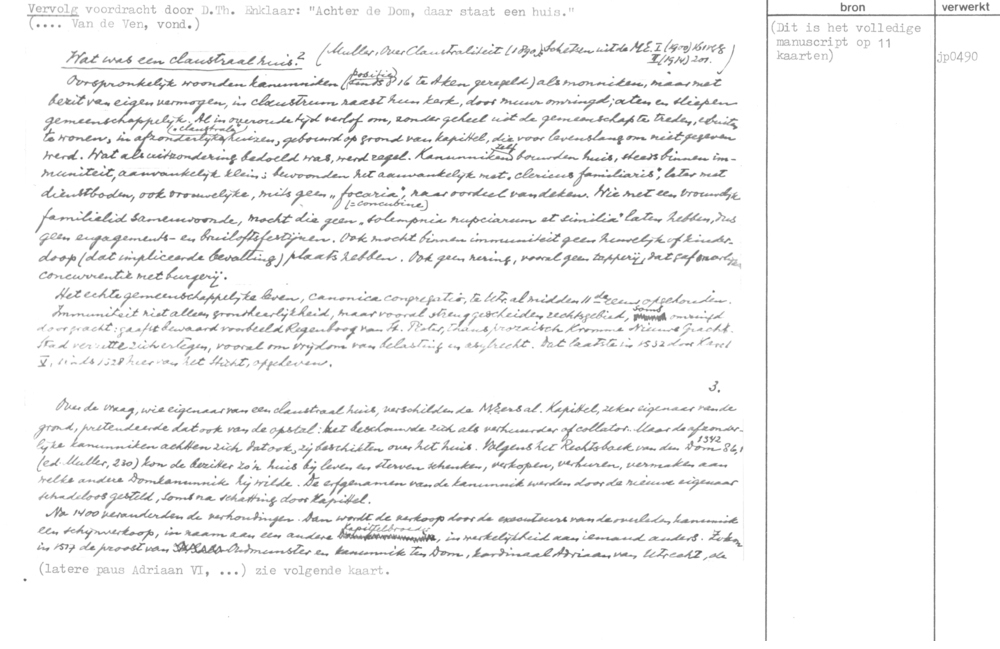 Vervolg voordracht door D.Th. Enklaar: "Achter de Dom, daar staat een huis."
(.... Van de Ven, vond.)
bron
verwerkt
(Dit is het volledige
manuscript op 11
kaarten)
jp0490
Wat was een claustraal huis? (Muller, Over Claustraliteit (1890), Schetsen uit de M.E. I (1900)
II (1914) 201.)
Oorspronkelijk woonden kanunniken (positie sinds 816 te Aken geregeld) als monniken, maar met
bezit van eigen vermogen, in claustrum naast hun kerk, door muur omringd; aten en sliepen
gemeenschappelijk. Al in overoude tijd verlof om, zonder geheel uit de gemeenschap te treden, erbuiten
te wonen, in afzonderlijke (= claustrale) huizen, gebouwd op grond van kapittel, die voor levenslang om niet gegeven
werd. Wat als uitzondering bedoeld was, werd regel. Kanunniken zelf bouwden huis, steeds binnen im-
muniteit, aanvankelijk klein; bewoonden het aanvankelijk met „clericus familiaris", later met
dienstboden, ook vrouwelijke, mits geen „focaria", naar oordeel van deken. Wie met een vrouwelijk
(= concubine)
familielid samenwoonde, mocht die geen „solempnia nupciarum et similia" laten hebben, dus
geen engagements- en bruiloftsfestijnen. Ook mocht binnen immuniteit geen huwelijk of kinder-
doop (dat impliceerde bevalling) plaats hebben. Ook geen nering, vooral geen tapperij, dat gaf
concurrentie met burgerij.
Het echte gemeenschappelijke leven, canonica congregatio, te Utr. al midden 11de eeuw opgehouden.
Immuniteit niet alleen grondheerlijkheid, maar vooral streng gescheiden rechtsgebied, soms omringd
door gracht: gaafst bewaard voorbeeld Regenboog van St. Pieter, thans prozaïsch Kromme Nieuwe Gracht.
Stad zich ertegen, vooral om vrijdom van belasting en asylrecht. Dat laatste in 1532 door Karel
V, sinds 1528 heer van het Sticht, opgeheven.
3.
Over de vraag, wie eigenaar van een claustraal huis, verschilden de M.Eers al. Kapittel, zeker eigenaar van de
grond, pretendeerde dat ook van de opstal: het beschouwde zich als verhuurder of collator. Maar de afzonder-
lijke kanunniken achtten zich dat ook, zij beschikten over het huis. Volgens het Rechtsboek van den Dom 1342 84,1
(ed. Muller, 230) kon de bezitter zo'n huis bij leven en sterven schenken, verkopen, verhuren, vermaken aan
welke andere Domkanunnik hij wilde. De erfgenamen van de kanunnik werden door de nieuwe eigenaar
schadeloos gesteld, soms na schatting door kapittel.
Na 1400 veranderden de verhoudingen. Dan wordt de verkoop door de executeurs van de overleden kanunnik
een schijnverkoop, in naam aan een andere kapittelbroeder, in werkelijkheid aan iemand anders. Zo kon
in 1517 de proost van Oudmunster en kanunnik ten Dom, kardinaal Adriaan van Utrecht, de
(latere paus Adriaan VI, ...) zie volgende kaart.